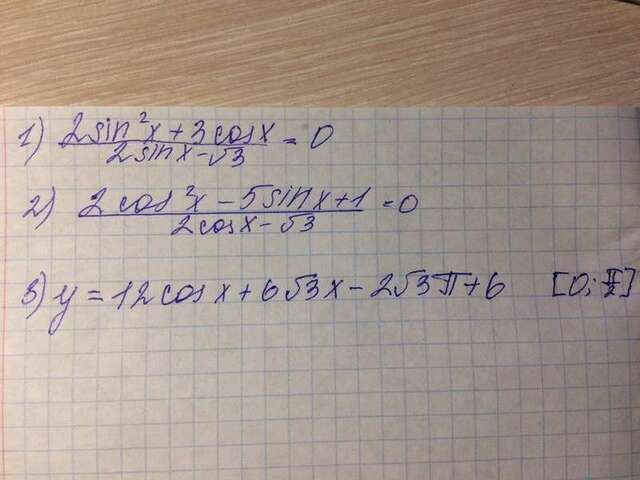 1) (2sin²x + 3cosx)/(2sinx - √3) = 0
2) (2cos²x - 5sinx + 1)/(2cosx - √3) = 0
3) y = 12cosx + 6√3x - 2√3π + 6 [0; π/2]